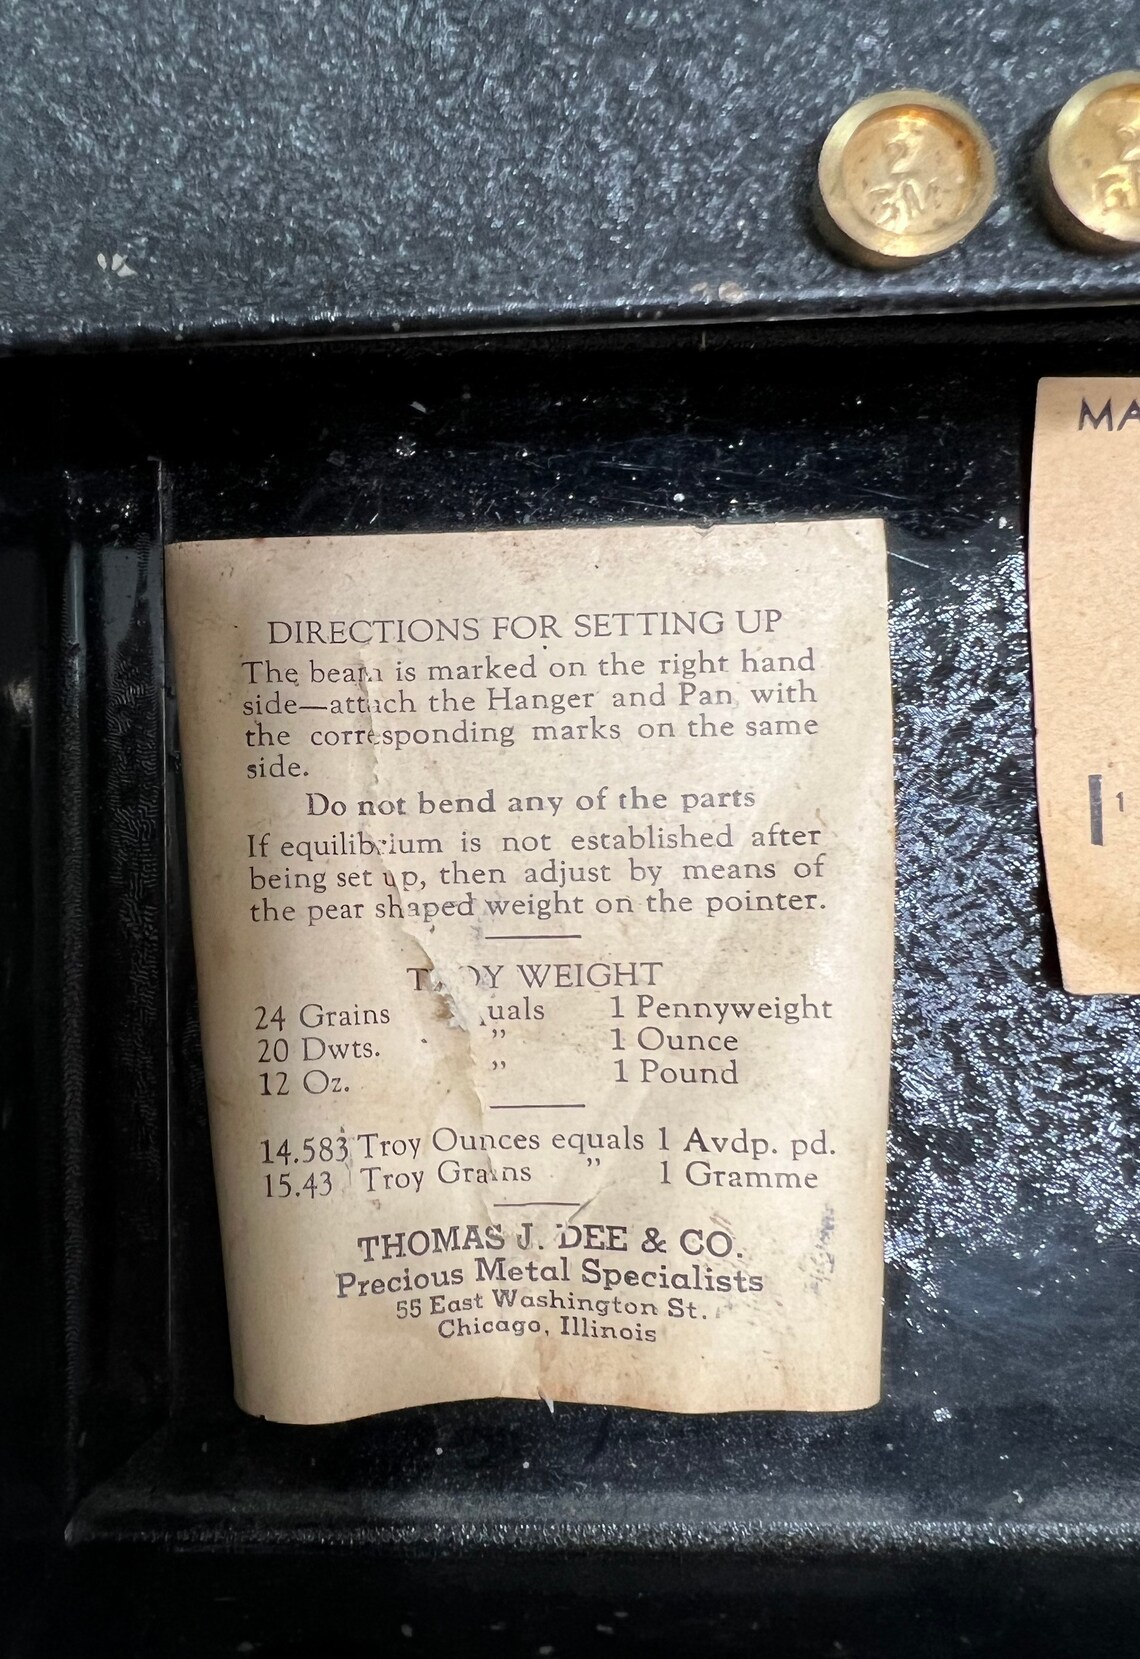 2
GM
2
G
MA
1
DIRECTIONS FOR SETTING UP
The beam is marked on the right hand
side—attach the Hanger and Pan with
the corresponding marks on the same
side.
Do not bend any of the parts
If equilibrium is not established after
being set up, then adjust by means of
the pear shaped weight on the pointer.
TROY WEIGHT
24 Grains equals 1 Pennyweight
20 Dwts. ” 1 Ounce
12 Oz. ” 1 Pound
14.583 Troy Ounces equals 1 Avdp. pd.
15.43 Troy Grains ” 1 Gramme
THOMAS J. DEE & CO.
Precious Metal Specialists
55 East Washington St.
Chicago, Illinois